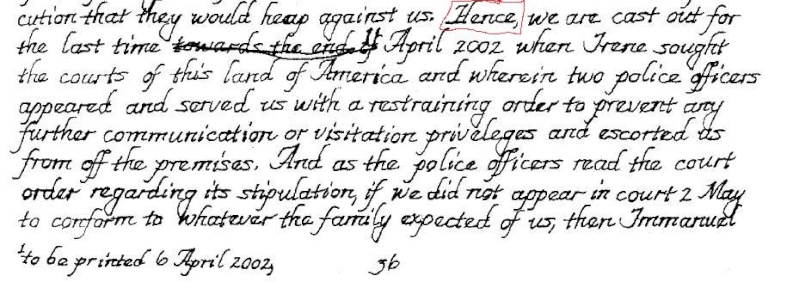 cution that they would heap against us. Hence, we are cast out for
the last time towards the end of April 2002 when Irene sought
the courts of this land of America and wherein two police officers
appeared and served us with a restraining order to prevent any
further communication or visitation priveleges and escorted us
from off the premises. And as the police officers read the court
order regarding its stipulation, if we did not appear in court 2 May
to conform to whatever the family expected of us, then Immanuel
1 to be printed 6 April 2002, 36